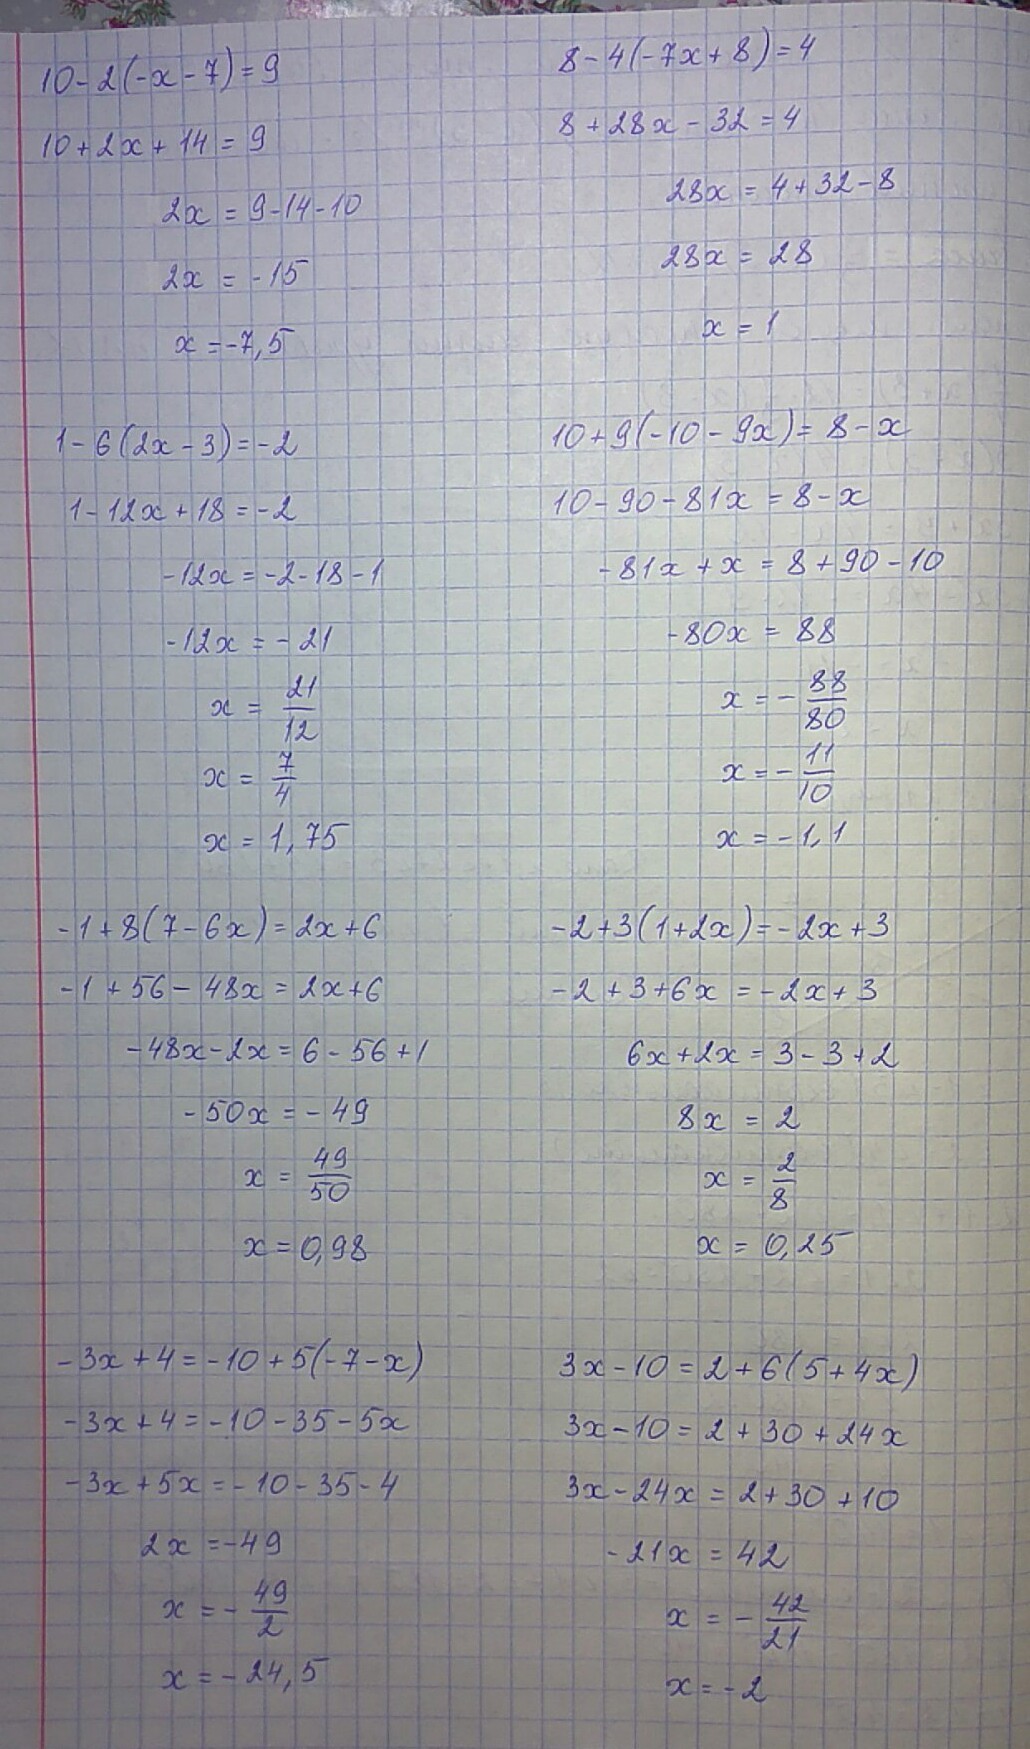 10-2(-x-7)=9
10+2x+14=9
2x=9-14-10
2x=-15
x=-7,5
8-4(-7x+8)=4
8+28x-32=4
28x=4+32-8
28x=28
x=1
1-6(2x-3)=-2
1-12x+18=-2
-12x=-2-18-1
-12x=-21
x=21/12
x=7/4
x=1,75
10+9(-10-9x)=8-x
10-90-81x=8-x
-81x+x=8+90-10
-80x=88
x=-88/80
x=-11/10
x=-1,1
-1+8(7-6x)=2x+6
-1+56-48x=2x+6
-48x-2x=6-56+1
-50x=-49
x=49/50
x=0,98
-2+3(1+2x)=-2x+3
-2+3+6x=-2x+3
6x+2x=3-3+2
8x=2
x=2/8
x=0,25
-3x+4=-10+5(-7-x)
-3x+4=-10-35-5x
-3x+5x=-10-35-4
2x=-49
x=-49/2
x=-24,5
3x-10=2+6(5+4x)
3x-10=2+30+24x
3x-24x=2+30+10
-21x=42
x=-42/21
x=-2